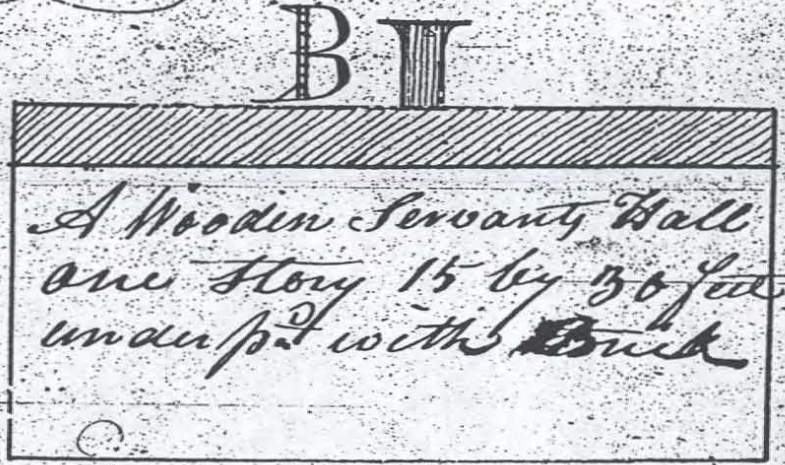 B
A Wooden Servants Hall
one Story 15 by 30 feet
underpd with Brick